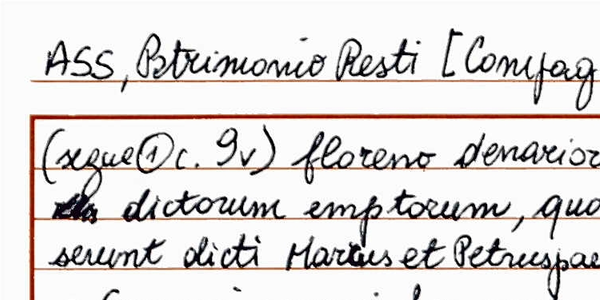 ASS, Patrimonio Resti [Compag
(segue ① c. 9v) floreno denarior
dictorum emptorum, quo
serunt dicti Marcus et Petruspae